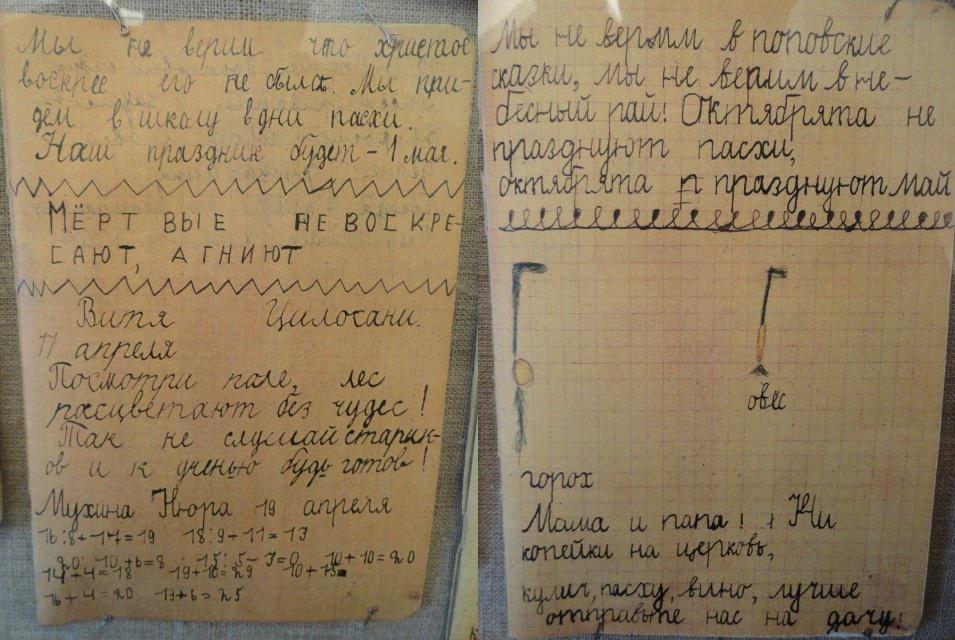 Мы не верим что христос
воскрес его не было. Мы при-
дём в школу в дни пасхи.
Наш праздник будет - 1 мая.
МЁРТВЫЕ НЕ ВОСКРЕ-
САЮТ, А ГНИЮТ
Витя Цилосани.
11 апреля
Посмотри поле, лес
расцветают без чудес!
Так не слушай старик-
ов и к ученью будь готов!
Мухина Нюра 19 апреля
16:8+17=19 18:9+11=13
20:10+6=8 15:5-3=0 10+10=20
14+4=18 19+10=29 10+13=
16+4=20 19+6=25
Мы не верим в поповские
сказки, мы не верим в не-
бесный рай! Октябрята не
празднуют пасхи,
октябрята п празднуют май
овёс
горох
Мама и папа! Ни
копейки на церковь,
кулич, пасху, вино, лучше
отправьте нас на дачу!